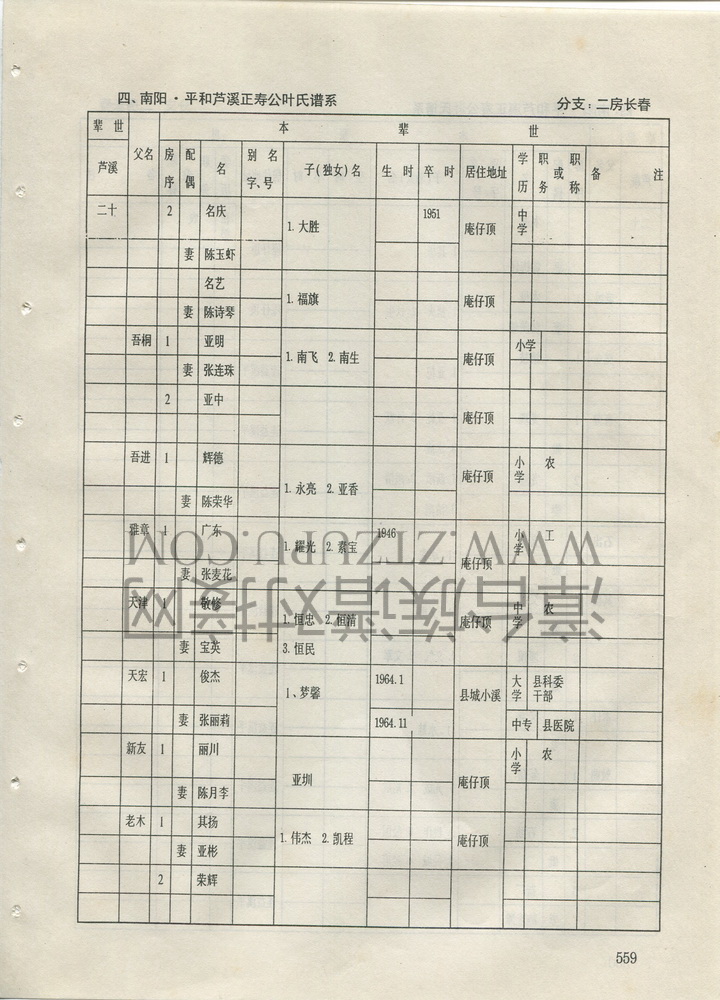 四、南阳·平和芦溪正寿公叶氏谱系 分支：二房长春
辈世 父名 本辈世
芦溪 房序 配偶 名 别名字、号 子(独女)名 生时 卒时 居住地址 学历 职务或职称 备注
二十 2 名庆 1.大胜 1951 庵仔顶 中学
妻 陈玉虾
名艺 1.福旗 庵仔顶
妻 陈诗琴
吾桐 1 亚明 1.南飞 2.南生 庵仔顶 小学
妻 张连珠
2 亚中 庵仔顶
吾进 1 辉德 1.永亮 2.亚香 庵仔顶 小学 农
妻 陈荣华
雅章 1 广东 1.耀光 2.素宝 1946 庵仔顶 小学 工
妻 张麦花
天津 1 敬修 1.恒忠 2.恒清 庵仔顶 中学 农
妻 宝英 3.恒民
天宏 1 俊杰 1、梦馨 1964.1 县城小溪 大学 县科委干部
妻 张丽莉 1964.11 中专 县医院
新友 1 丽川 亚圳 庵仔顶 小学 农
妻 陈月李
老木 1 其扬 1.伟杰 2.凯程 庵仔顶
妻 亚彬
2 荣辉
559
漳台族谱对接网
WWW.ZTZUPU.COM